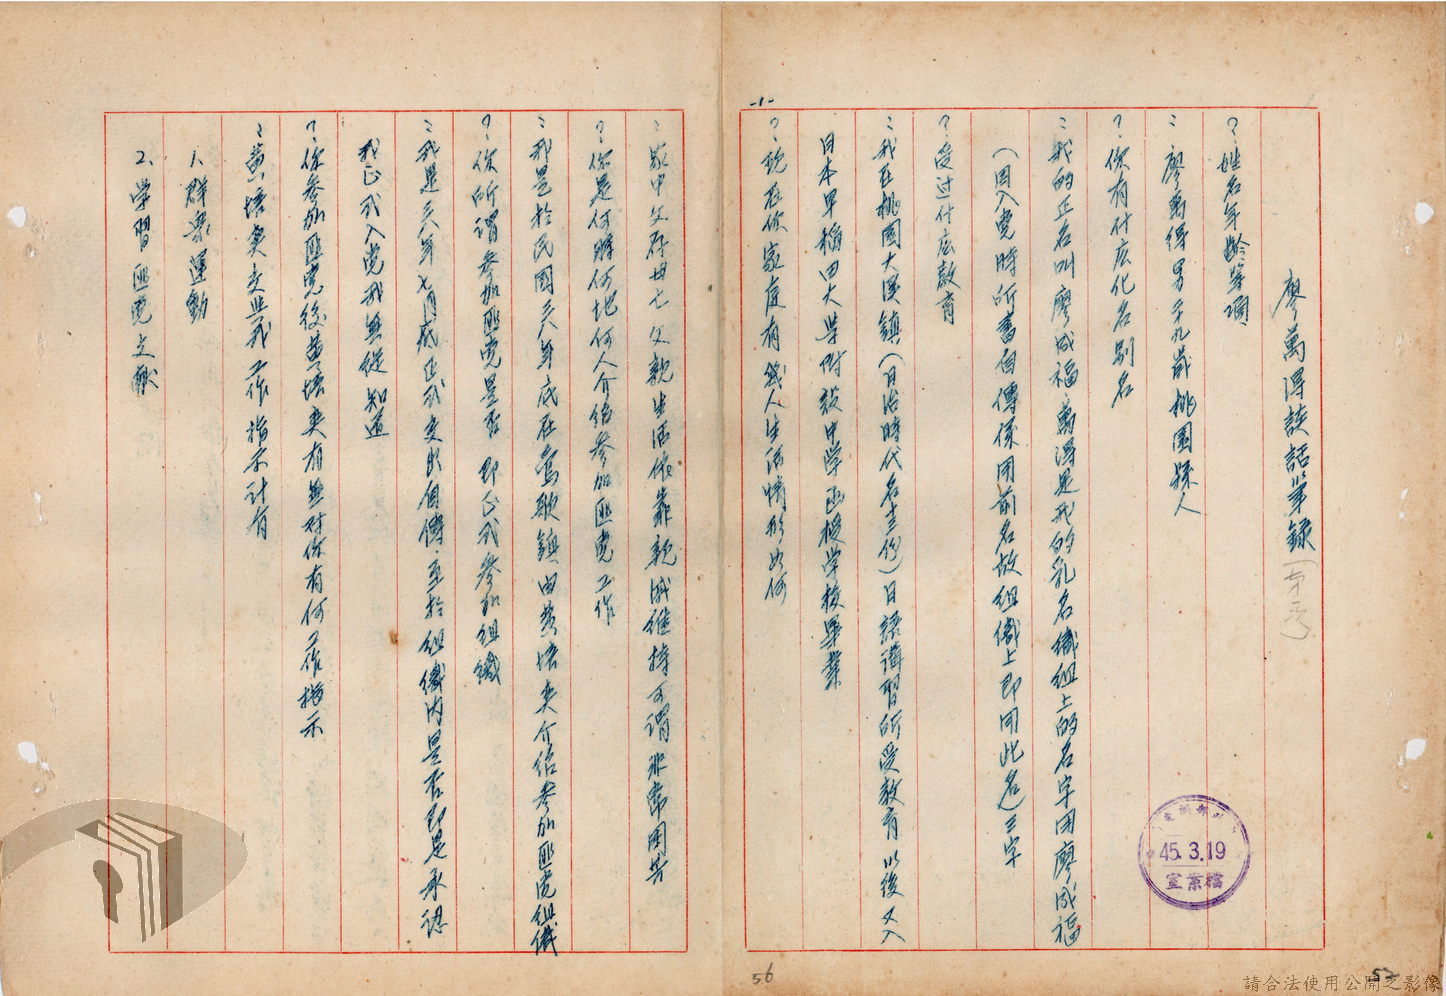 廖萬得談話筆錄
?：姓名年齡等項
：廖萬得 男 三十九歲 桃園縣人
?：你有什広化名別名
：我的正名叫廖成福 萬得是我的乳名 織組上的名字因廖成福
(因入党時所書自傳係用前名故組織上即用此名)三字
?：受过什広教育
：我在桃園大溪鎮(日治時代名 )日語講習所受教育 以後又入
日本早稲田大学附設中学函授学校畢業
?：現在你家庭有幾人生活情形如何
：家中父存母亡 父親生活依靠親戚維持可謂非常困苦
?：你是何時何地何人介绍参加匪党工作
：我是於民國三八年底在鶯歌鎮由黄培奕介绍参加匪党組織
?：你所謂参加匪党是否即正式参加組織
：我是三八年七月底正式交出自傳．至於組織内是否即是承認
我正式入党我無從知道
?：你参加匪党後黄培奕有無对你有何工作指示
：黄培奕交與我工作指示计有
1、群衆運動
2、学習匪党文献
-1-
45.3.19
檔案室
56
52
請合法使用公開之影像